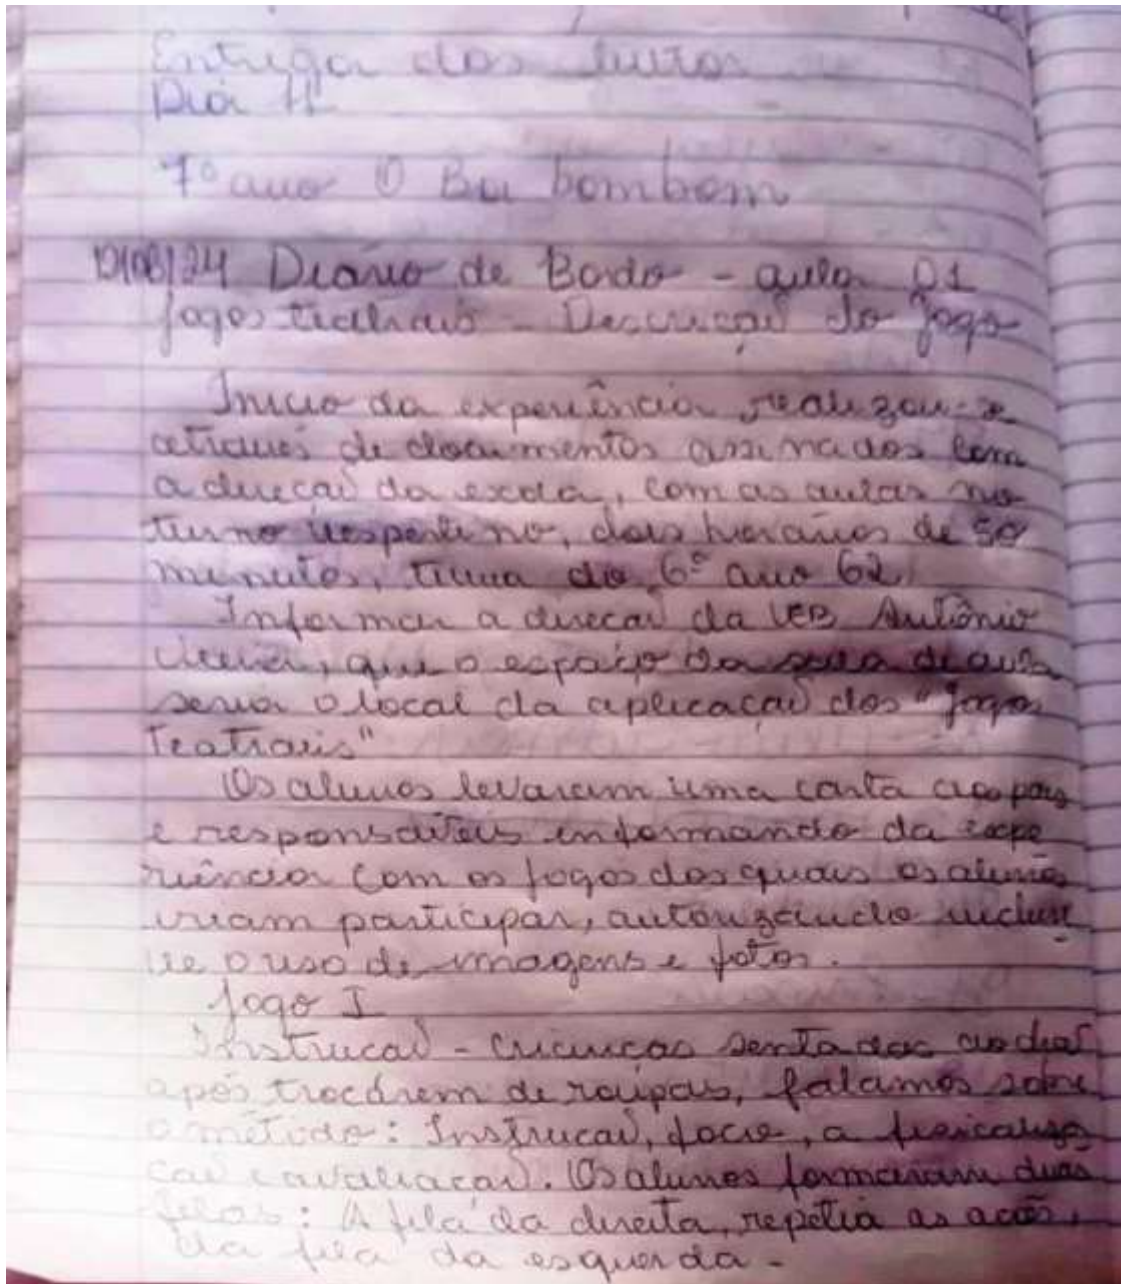 Entrega dos livros
Dia 11
7º ano O Bu bombom
12/08/24 Diário de Bordo - aula 01
Jogos teatrais - Descrição do Jogo
Inicio da experiência realizou-se
através de documentos assinados com
a direção da escola, com as aulas no
turno vespertino, dois horários de 50
minutos, turma do 6º ano 62.
Informar a direção da UEB Antônio
Vieira, que o espaço da sala de aula
seria o local da aplicação dos "Jogos
Teatrais"
Os alunos levaram uma carta aos pais
e responsáveis informando da expe
riência com os jogos dos quais os alunos
iriam participar, autorizando inclusi
ve o uso de imagens e fotos.
Jogo I
Instrução - crianças sentadas ao chão
após trocárem de roupas, falamos sobre
o método: Instrução, foco, a fisicaliza
ção e avaliação. Os alunos formaram duas
filas: A fila da direita, repetia as ações,
da fila da esquerda.